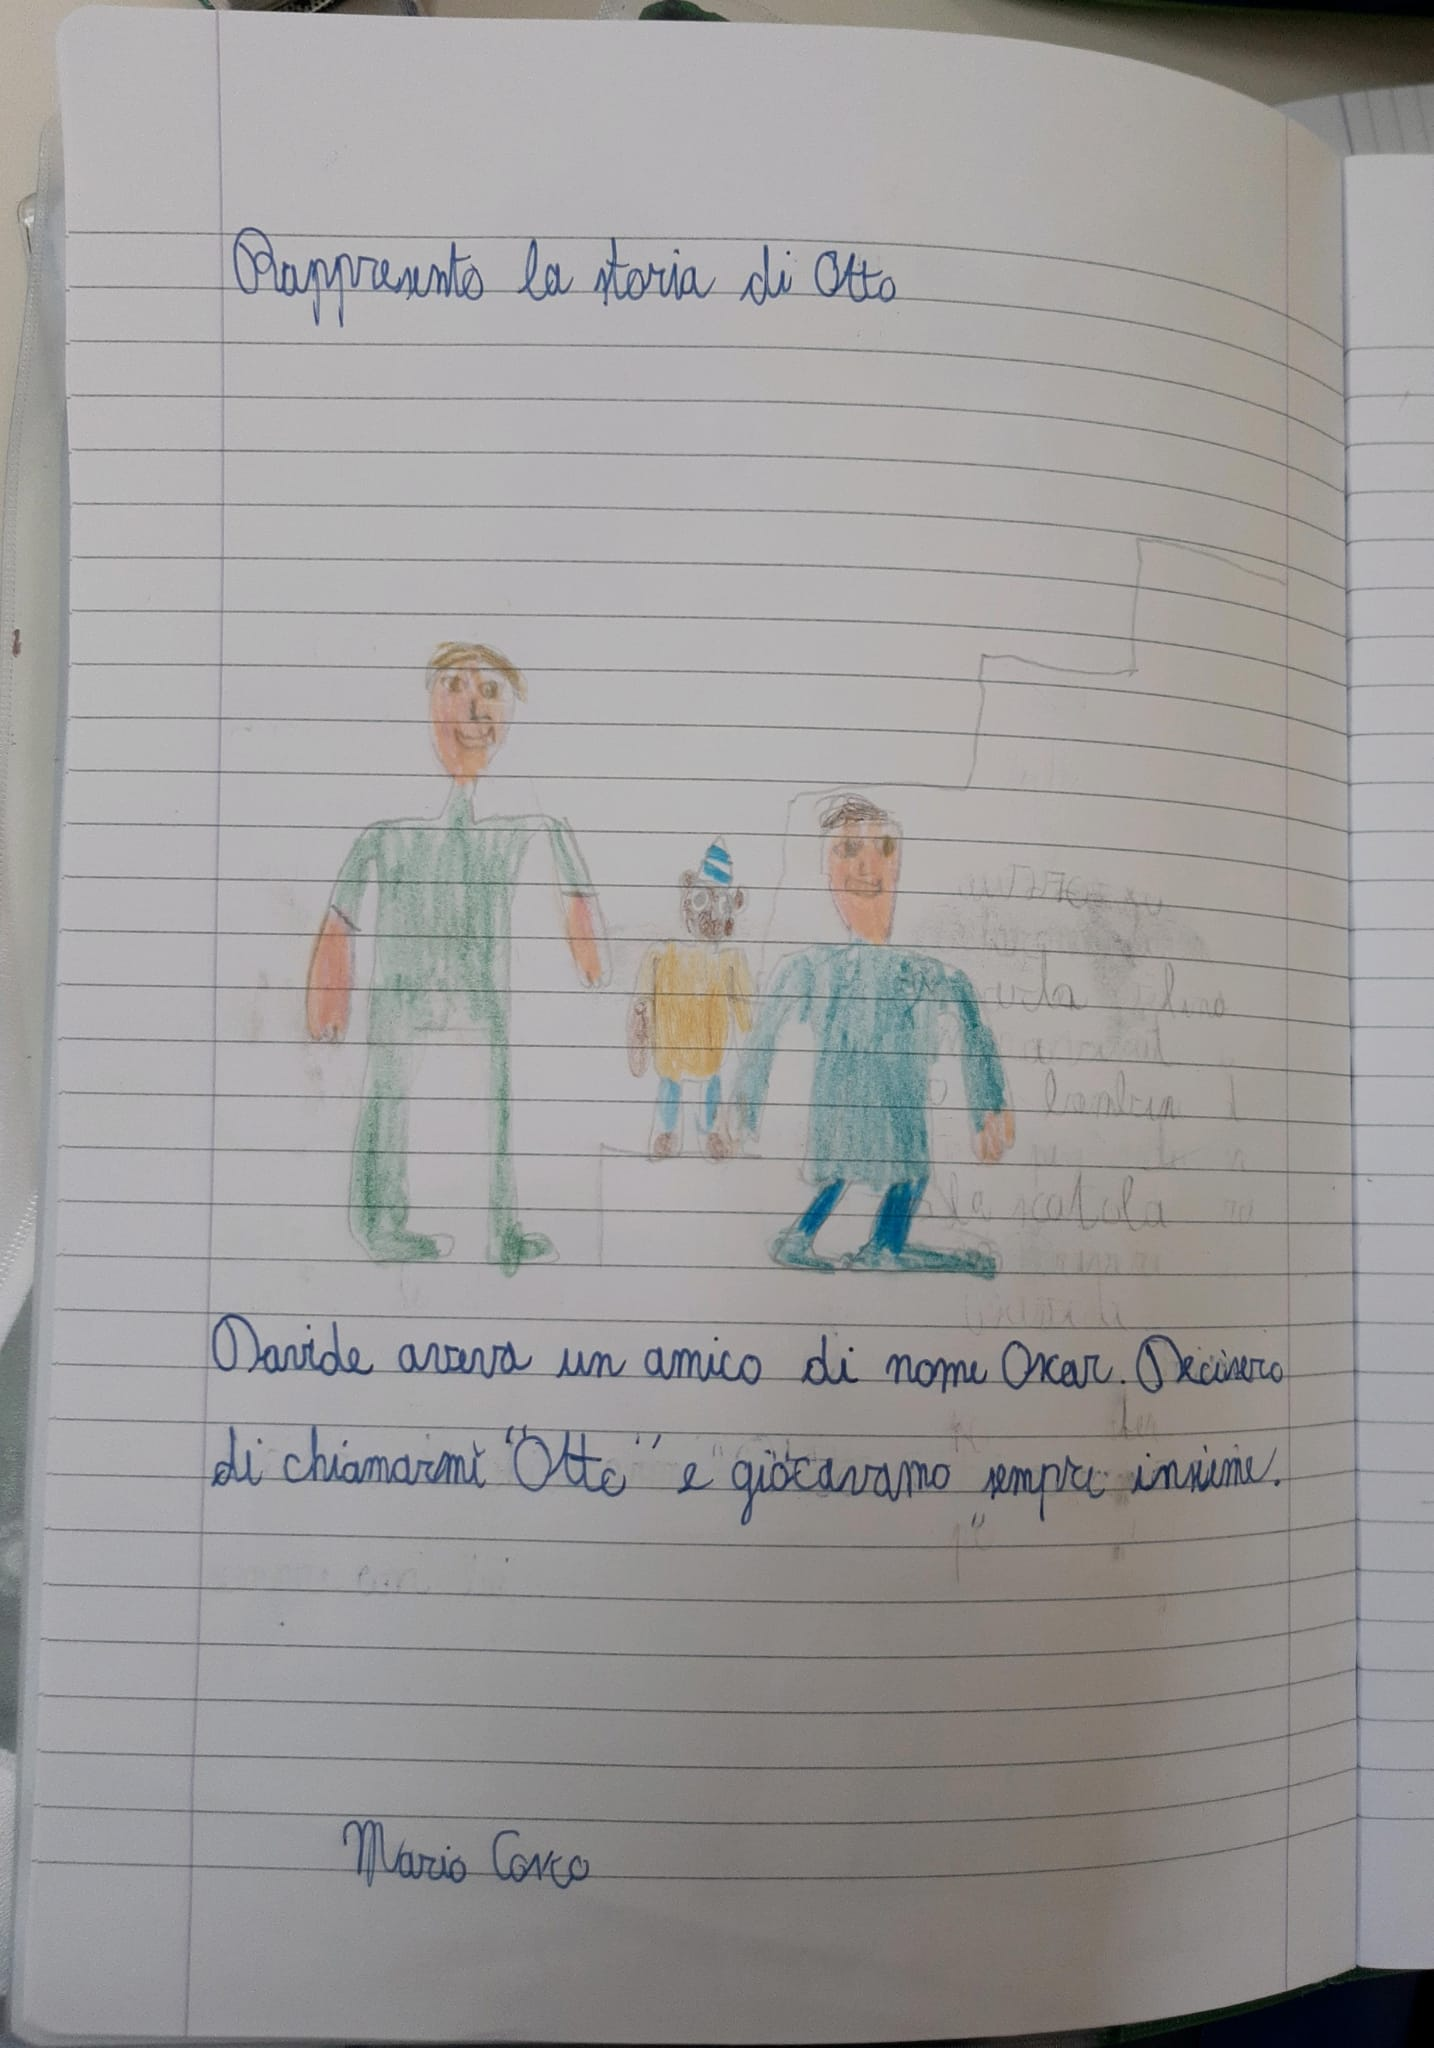 Rappresento la storia di Otto
Davide aveva un amico di nome Oscar. Decisero
di chiamarmi "Otto" e giocavamo sempre insieme.
Mario